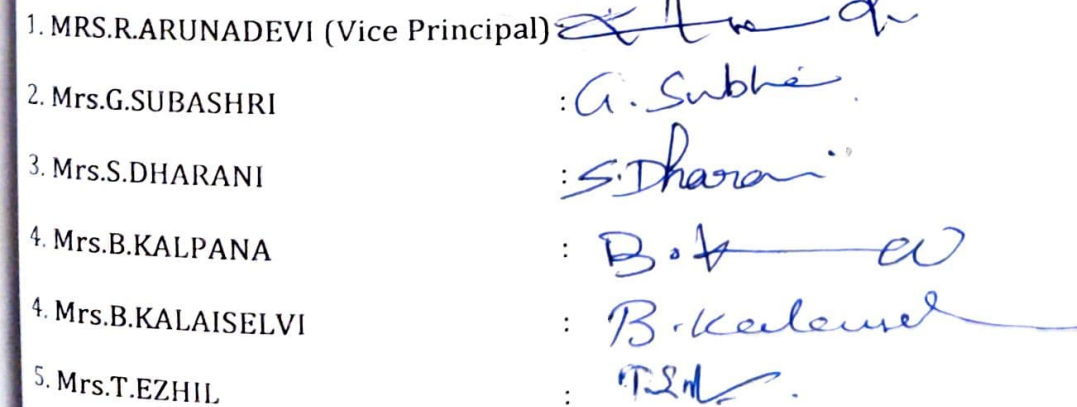 1. MRS.R.ARUNADEVI (Vice Principal)
2. Mrs.G.SUBASHRI : G. Subha
3. Mrs.S.DHARANI : S.Dharani
4. Mrs.B.KALPANA : B.
4. Mrs.B.KALAISELVI : B.
5. Mrs.T.EZHIL :